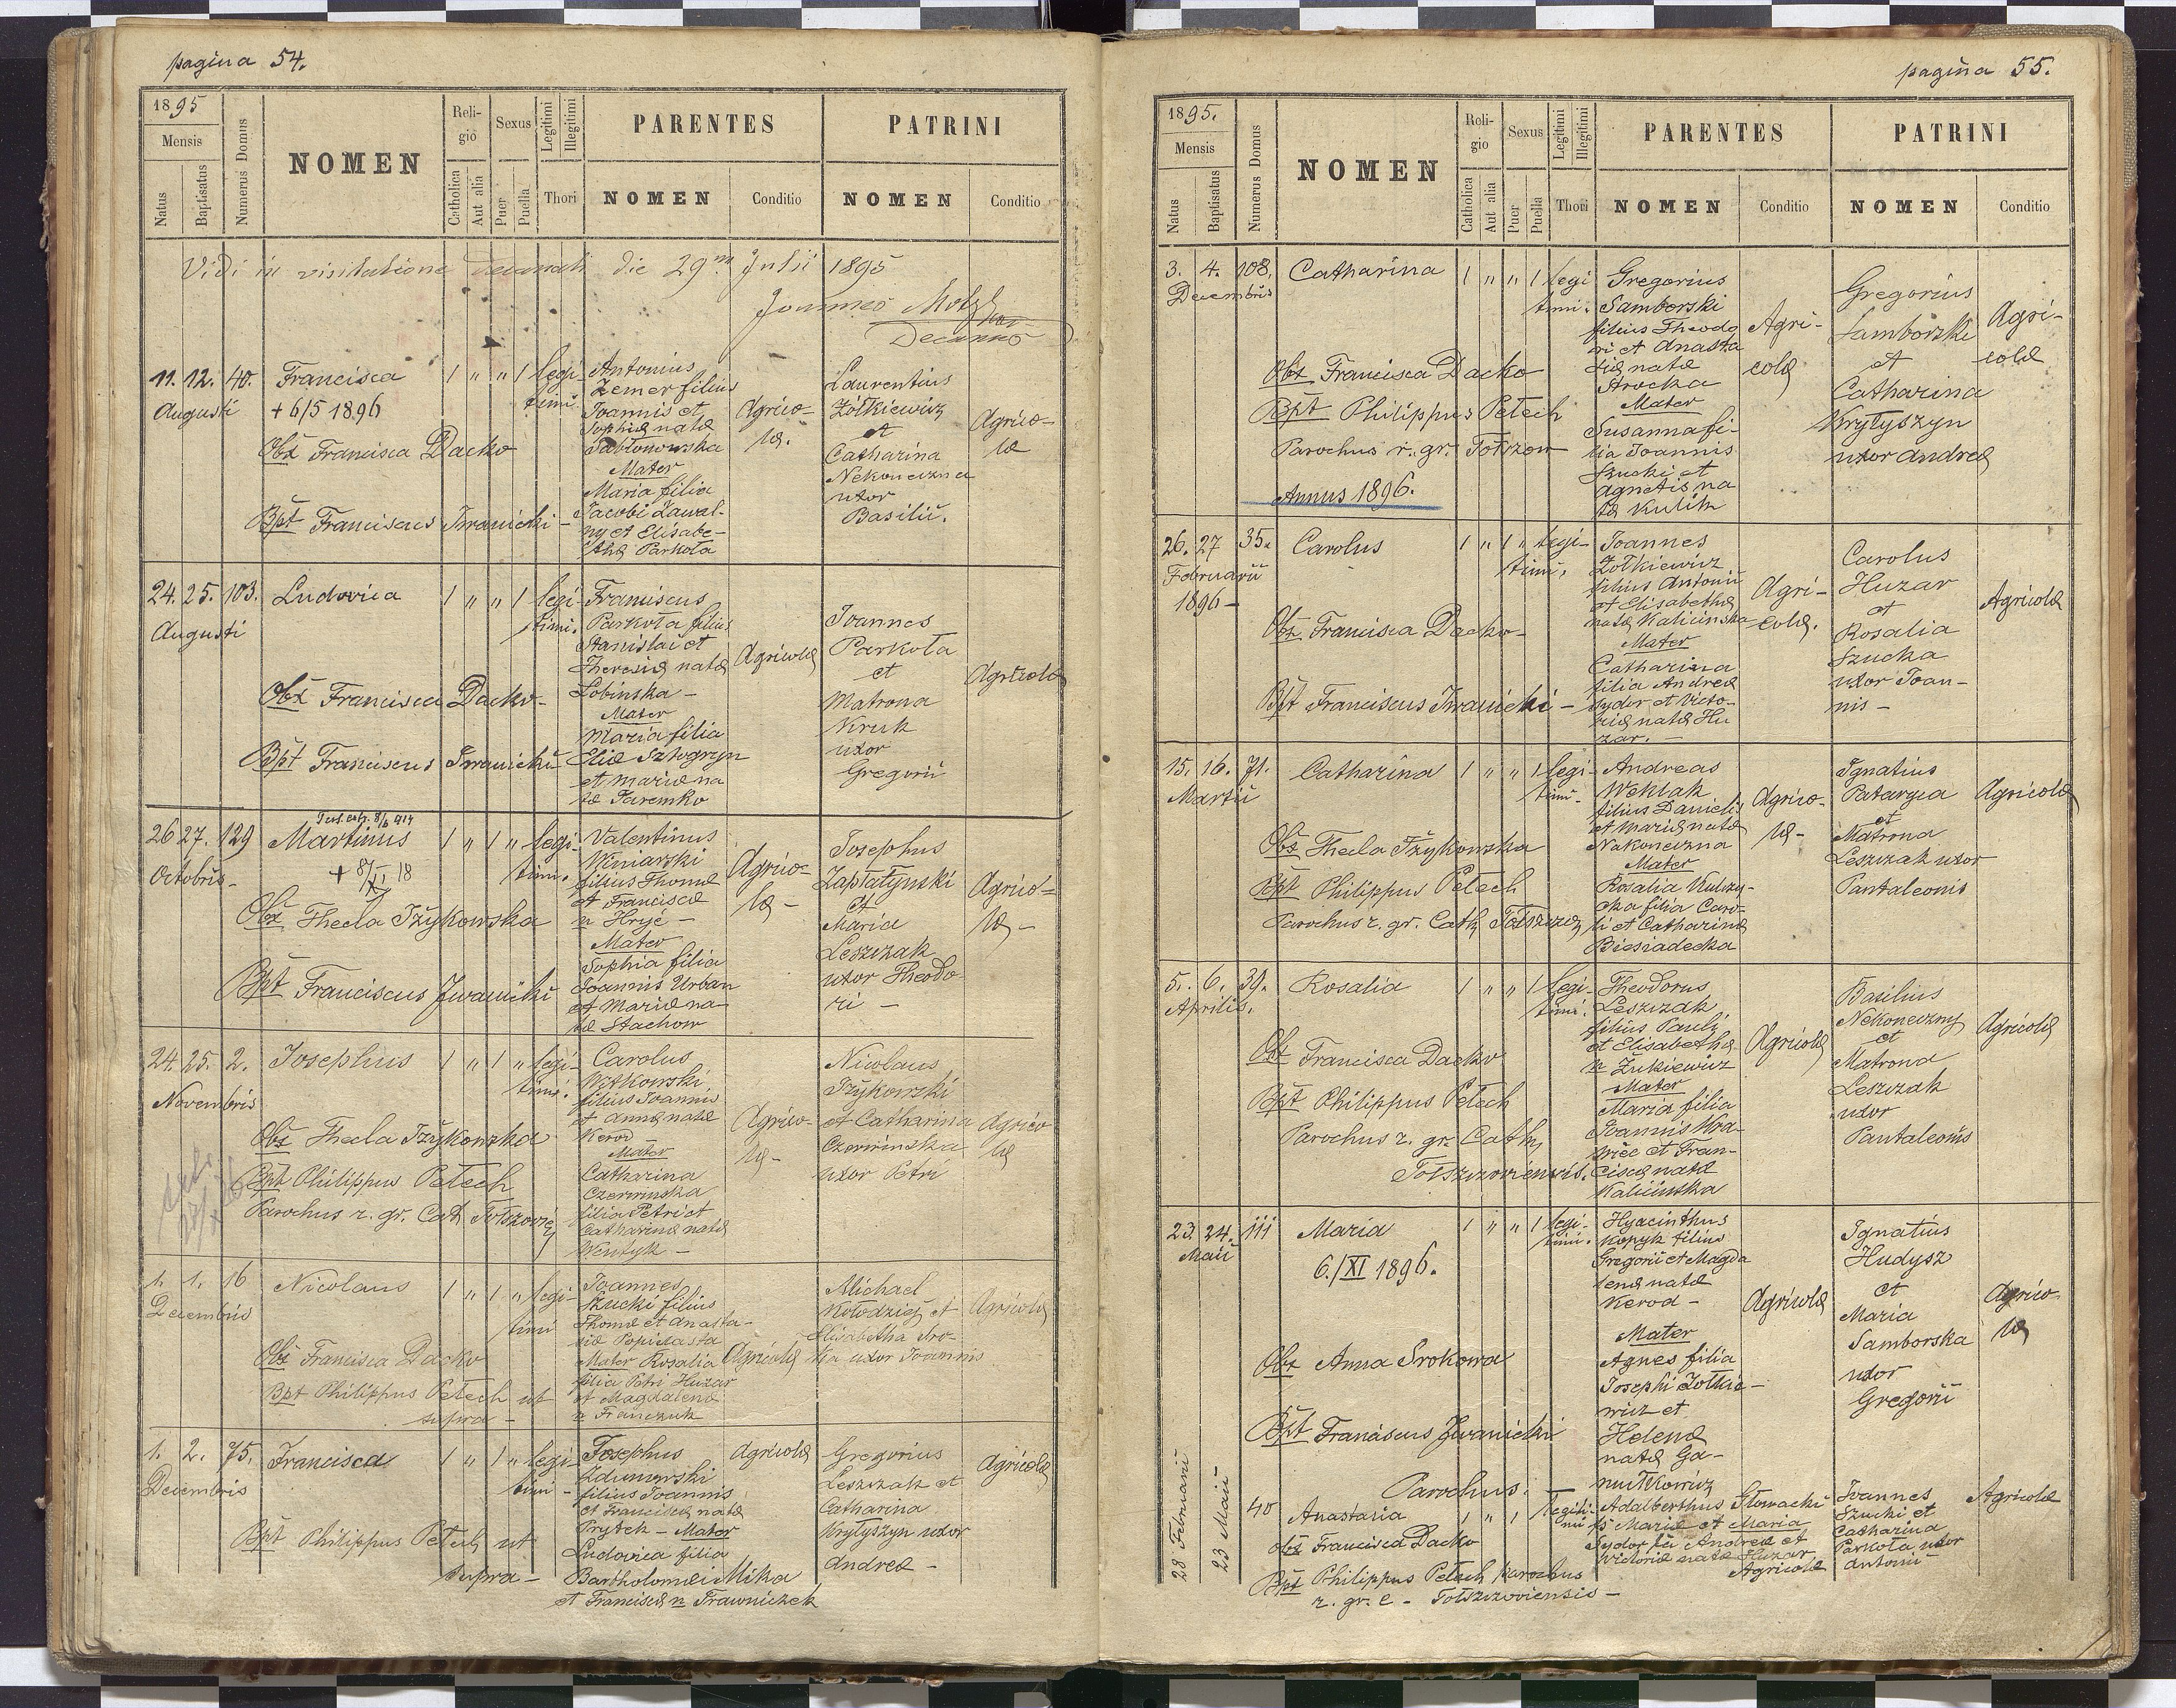 pagina 54.
1895
Mensis
Natus
Baptisatus
Numerus Domus
NOMEN
Religio
Catholica
Aut alia
Sexus
Puer
Puella
Legitimi
Illegitimi
Thori
PARENTES
NOMEN
Conditio
PATRINI
NOMEN
Conditio
Vidi in visitatione decanali die 29m Julii 1895
Joannes
Decanus
11. 12. 40. Francisca 1 " " 1 legi-
Augusti
+ 6/5 1896
timi
Obs Francisca Dacko
Bpt Franciscus Iwanicki -
Antonius
Zemer filius
Joannis et
Sophiæ natæ
Jabłonowska
Mater
Maria filia
Jacobi Zawal-
ny et Elisabe-
thæ Parkoła
Agrico-
læ.
Laurentius
Żołkiewicz
et
Catharina
Nekoneczna
uxor
Basilii.
Agrico-
læ
24. 25. 103. Ludovica 1 " " 1 legi-
Augusti
timi.
Obs Francisca Dacko -
Bpt Franciscus Iwanicki
Franciscus
Parkoła filius
Stanislai et
Theresiæ natæ
Łobinska -
Mater
Maria filia
Eliæ Sztogryn
et Mariæ na
tæ Jaremko
Agricolæ
Joannes
Parkoła
et
Matrona
Kruk
uxor
Gregorii
Agricolæ
26 27. 129 Martinus 1 " 1 " legi-
Octobris -
+ 8/XI 18
timi.
Obs Thecla Iżykowska
Bpt Franciscus Iwanicki
Valentinus
Winiarski
filius Thomæ
et Franciscæ
n Hryć -
Mater
Sophia filia
Joannis Urban
et Mariæ na-
tæ Stachow
Agrico-
læ -
Josephus
Zapłatynski
et
Maria
Leszczak
uxor Theodo
ri -
Agrico-
læ -
24. 25. 2. Josephus 1 " 1 " legi-
Novembris
timi.
Obs Thecla Iżykowska
Bpt Philippus Petech
Parochus r. gr. Cat
Carolus
Witkowski
filius Joannis
et Annæ natæ
Kerod
Mater
Catharina
Czerwinska
filia Petri et
Catharinæ natæ
Wentyk -
Agrico-
læ -
Nicolaus
Iżykowski
et Catharina
Czerwinska
uxor Petri
Agrico
læ
1. 1. 16 Nicolaus 1 " 1 " legi-
Decembris
timi
Obs Francisca Dacko
Bpt Philippus Petech ut
supra -
Joannes
Szucki filius
Thomæ et Anasta-
siæ Popielasta
Mater Rosalia
filia Petri Huzar
et Magdalenæ
n Franczuk
Agricolæ
Michael
Kołodziej et
Elisabetha Sro-
ka uxor Joannis
Agricolæ
1. 2. 75. Francisca 1 " 1 " legi-
Decembris
timi -
Bpt Philippus Petech ut
supra -
Josephus
Zdunowski
filius Joannis
et Franciscæ natæ
Prytek - Mater
Ludovica filia
Bartholomæi Mika
et Franciscæ n Trawniczek
Agricolæ
Gregorius
Leszczak et
Catharina
Krytyszyn uxor
Andreæ -
Agricolæ
pagina 55.
1895.
Mensis
Natus
Baptisatus
Numerus Domus
NOMEN
Religio
Catholica
Aut alia
Sexus
Puer
Puella
Legitimi
Illegitimi
Thori
PARENTES
NOMEN
Conditio
PATRINI
NOMEN
Conditio
3. 4. 108. Catharina 1 " " 1 legi
Decembris
timi.
Obs Francisca Dacko
Bpt Philippus Petech
Parochus r. gr. Tołszczow
Annus 1896.
Gregorius
Samborski
filius Theodo
ri et Anasta
siæ natæ
Srocka
Mater
Susanna fi-
lia Joannis
Szucki et
Agnetis na
tæ Kulik
Agri-
colæ
Gregorius
Samborski
et
Catharina
Krytyszyn
uxor Andreæ
Agri-
colæ
26. 27 35. Carolus 1 " 1 " legi-
Februarii
timi.
1896 -
Obs Francisca Dacko -
Bpt Franciscus Iwanicki -
Joannes
Żołkiewicz
filius Antonii
et Elisabethæ
natæ Kalicinska
Mater
Catharina
filia Andreæ
Sydor et Victo-
riæ natæ Hu
zar. -
Agri-
colæ.
Carolus
Huzar
et
Rosalia
Szucka
uxor Joan-
nis -
Agricolæ
15. 16. 71. Catharina 1 " " 1 legi-
Martii
timi.
Obs Thecla Iżykowska
Bpt Philippus Petech
Parochus r. gr. Cath
Andreas
Weklak
filius Danielis
et Mariæ natæ
Nakoneczna
Mater
Rosalia Kulczy-
cka filia Caro-
li et Catharinæ
Biesiadecka
Agrico-
læ -
Ignatius
Pataryca
et
Matrona
Leszczak uxor
Pantaleonis
Agricolæ
5. 6. 39. Rosalia 1 " " 1 legi-
Aprilis.
timi.
Obs Francisca Dacko
Bpt Philippus Petech
Parochus r. gr. Cath.
Tołszczoviensis.
Theodorus
Leszczak
filius Pauli
et Elisabethæ
n Żukiewicz
Mater
Maria filia
Joannis Kra-
wiec et Fran-
ciscæ natæ
Kalicinska
Agricolæ
Basilius
Nekoneczny
et
Matrona
Leszczak
uxor
Pantaleonis
Agricolæ
23. 24. 111 Maria 1 " " 1 legi-
Maii
timi.
6./XI 1896.
Obs Anna Srokowa
Bpt Franciscus Iwanicki
Parochus.
Hyacinthus
Kopyk filius
Gregorii et Magda
lenæ natæ
Kerod -
Mater
Agnes filia
Josephi Żołkie-
wicz et
Helenæ
natæ Ga-
Agricolæ
Ignatius
Hudysz
et
Maria
Samborska
uxor
Gregorii
Agrico
læ
28 Februarii
23 Maii
40 Anastasia 1 " " 1 legiti-
mi
Obs Francisca Dacko
Bpt Philippus Petech parochus
r. gr. c - Tołszczoviensis -
Adalberthus Głowacki
fs Mariæ et Maria
Sydor fa Andreæ et
Victoriæ natæ Huzar
Agricolæ
Joannes
Szucki et
Catharina
Parkoła uxor
Antonii -
Agricolæ